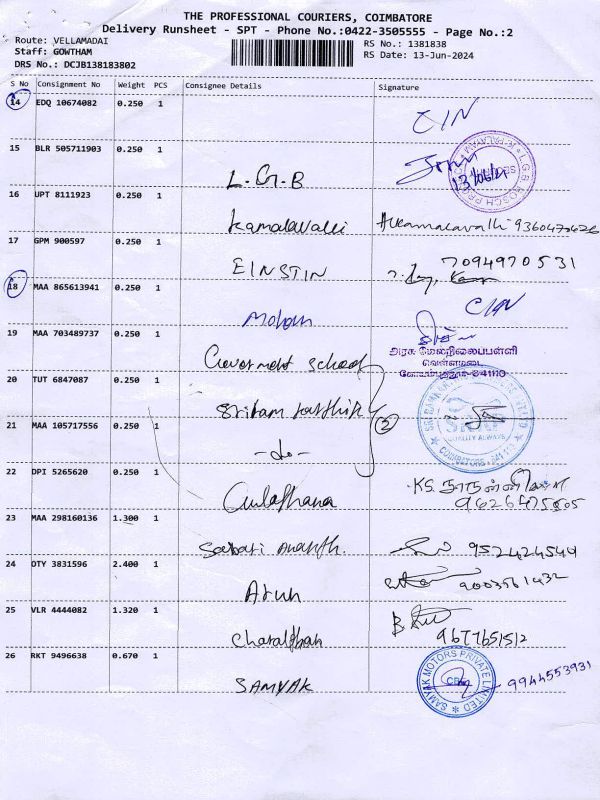 THE PROFESSIONAL COURIERS, COIMBATORE
Delivery Runsheet - SPT - Phone No.:0422-3505555 - Page No.:2
Route: VELLAMADAI
Staff: GOWTHAM
DRS No.: DCJB138183802
RS No.: 1381838
RS Date: 13-Jun-2024
S No Consignment No Weight PCS Consignee Details Signature
14 EDQ 10674082 0.250 1
CIN
15 BLR 505711903 0.250 1
L.G.B
13/06/24
16 UPT 8111923 0.250 1
Kamalavalli
9360470626
17 GPM 900597 0.250 1
EINSTIN
7094970531
18 MAA 865613941 0.250 1
Mohan
CIN
19 MAA 703489737 0.250 1
Goverment School
அரசு மேலநிலைப்பள்ளி
வெள்ளமடை
கோயம்புத்தூர்-641110
20 TUT 6847087 0.250 1
Sriram
QUALITY ALWAYS
COIMBATORE - 641 110
21 MAA 105717556 0.250 1
-do-
2
22 DPI 5265620 0.250 1
KS.
23 MAA 298160136 1.300 1
Sabari Ananth.
9524424549
24 OTY 3831596 2.400 1
Arun
9003561432
25 VLR 4444082 1.320 1
9677651512
26 RKT 9496638 0.670 1
SAMYAK
SAMYAK MOTORS PRIVATE LIMITED
CBE
9944553931